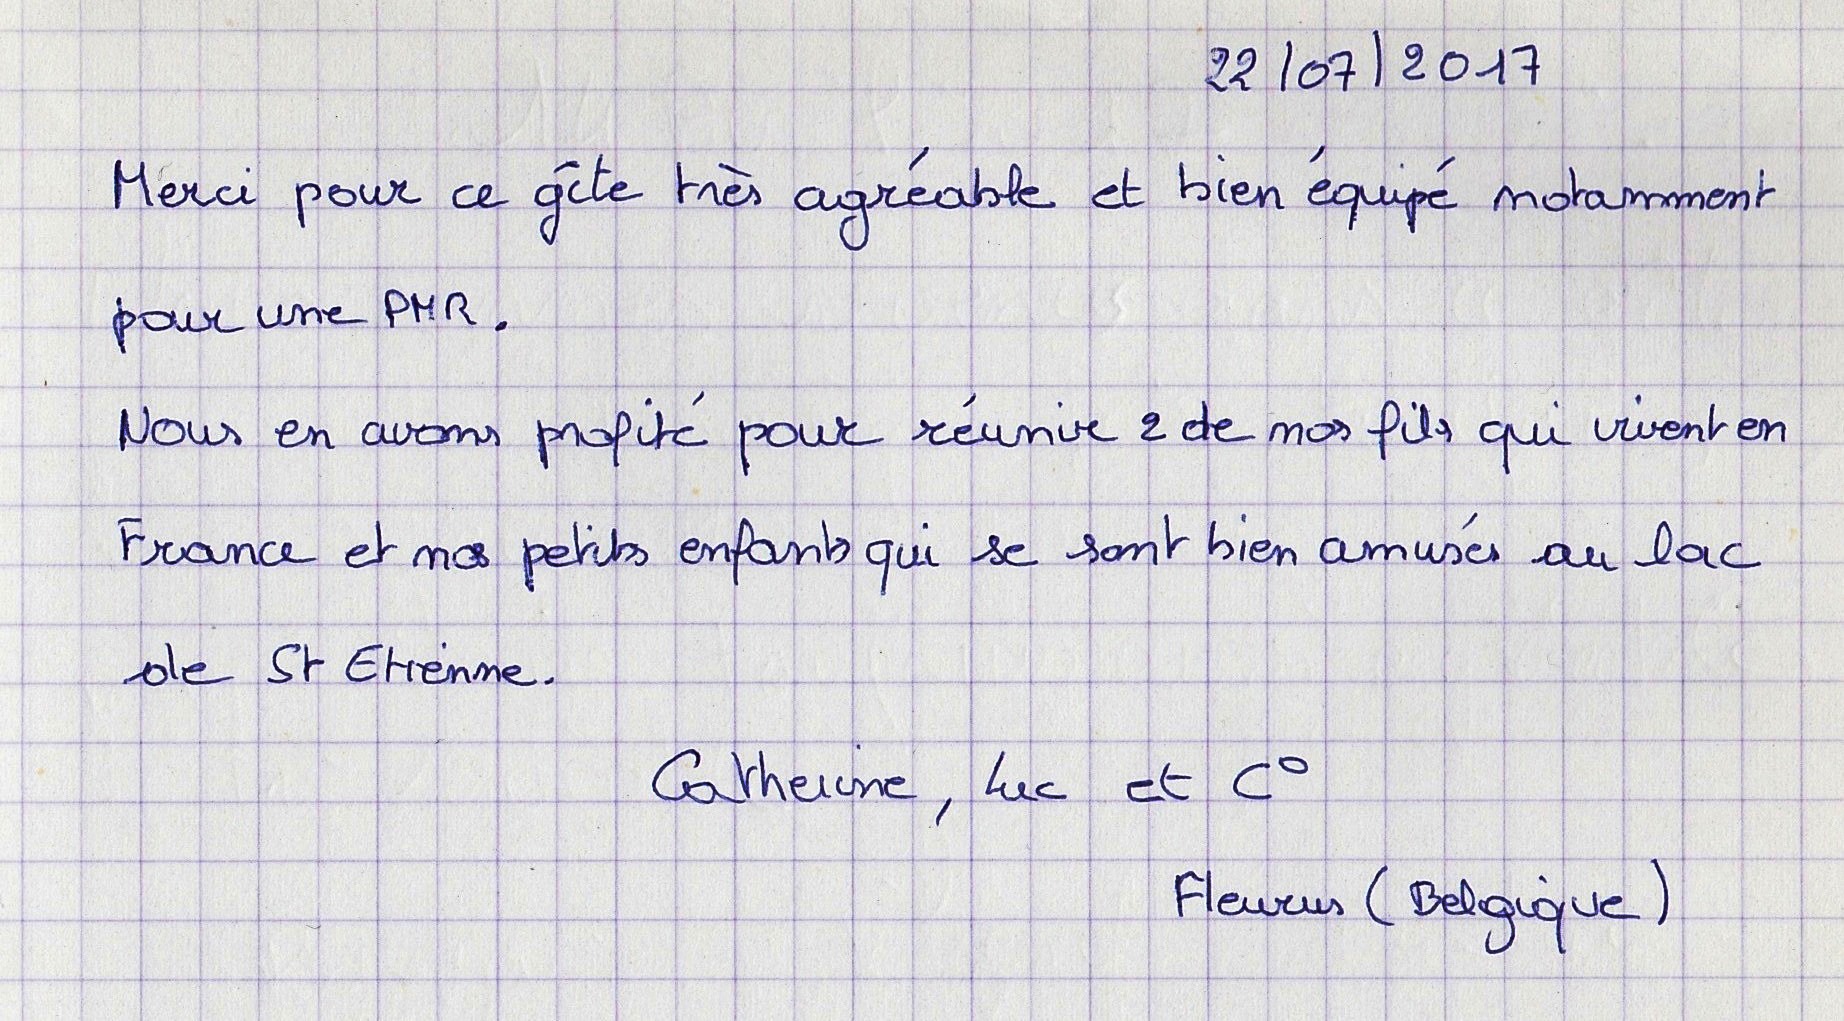 22/07/2017
Merci pour ce gîte très agréable et bien équipé notamment
pour une PMR.
Nous en avons profité pour réunir 2 de nos fils qui vivent en
France et nos petits enfants qui se sont bien amusés au lac
de St Etienne.
Catherine, Luc et C°
Fleurus (Belgique)